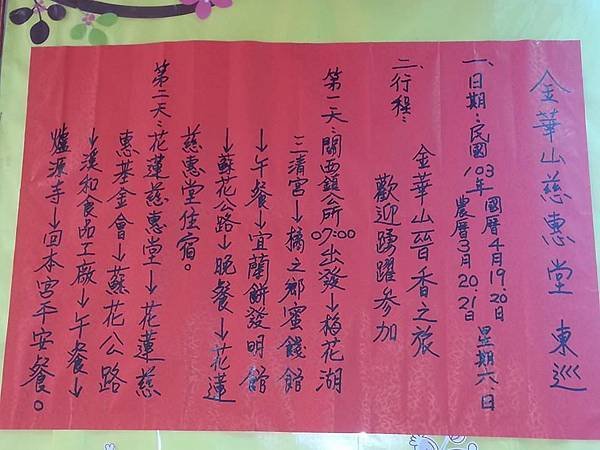 金華山慈惠堂 東巡
一、日期：民國103年 國曆4月19.20日 農曆3月20.21日 星期六、日
二、行程：
金華山晉香之旅
歡迎踴躍參加
第一天：關西鎮公所07:00出發→梅花湖
三清宮→橘之鄉蜜餞館
→午餐→宜蘭餅發明館
→蘇花公路→晚餐→花蓮
慈惠堂住宿。
第二天：花蓮慈惠堂→花蓮慈
惠基金會→蘇花公路
→溪和食品工廠→午餐→
爐源寺→回本宮平安餐。